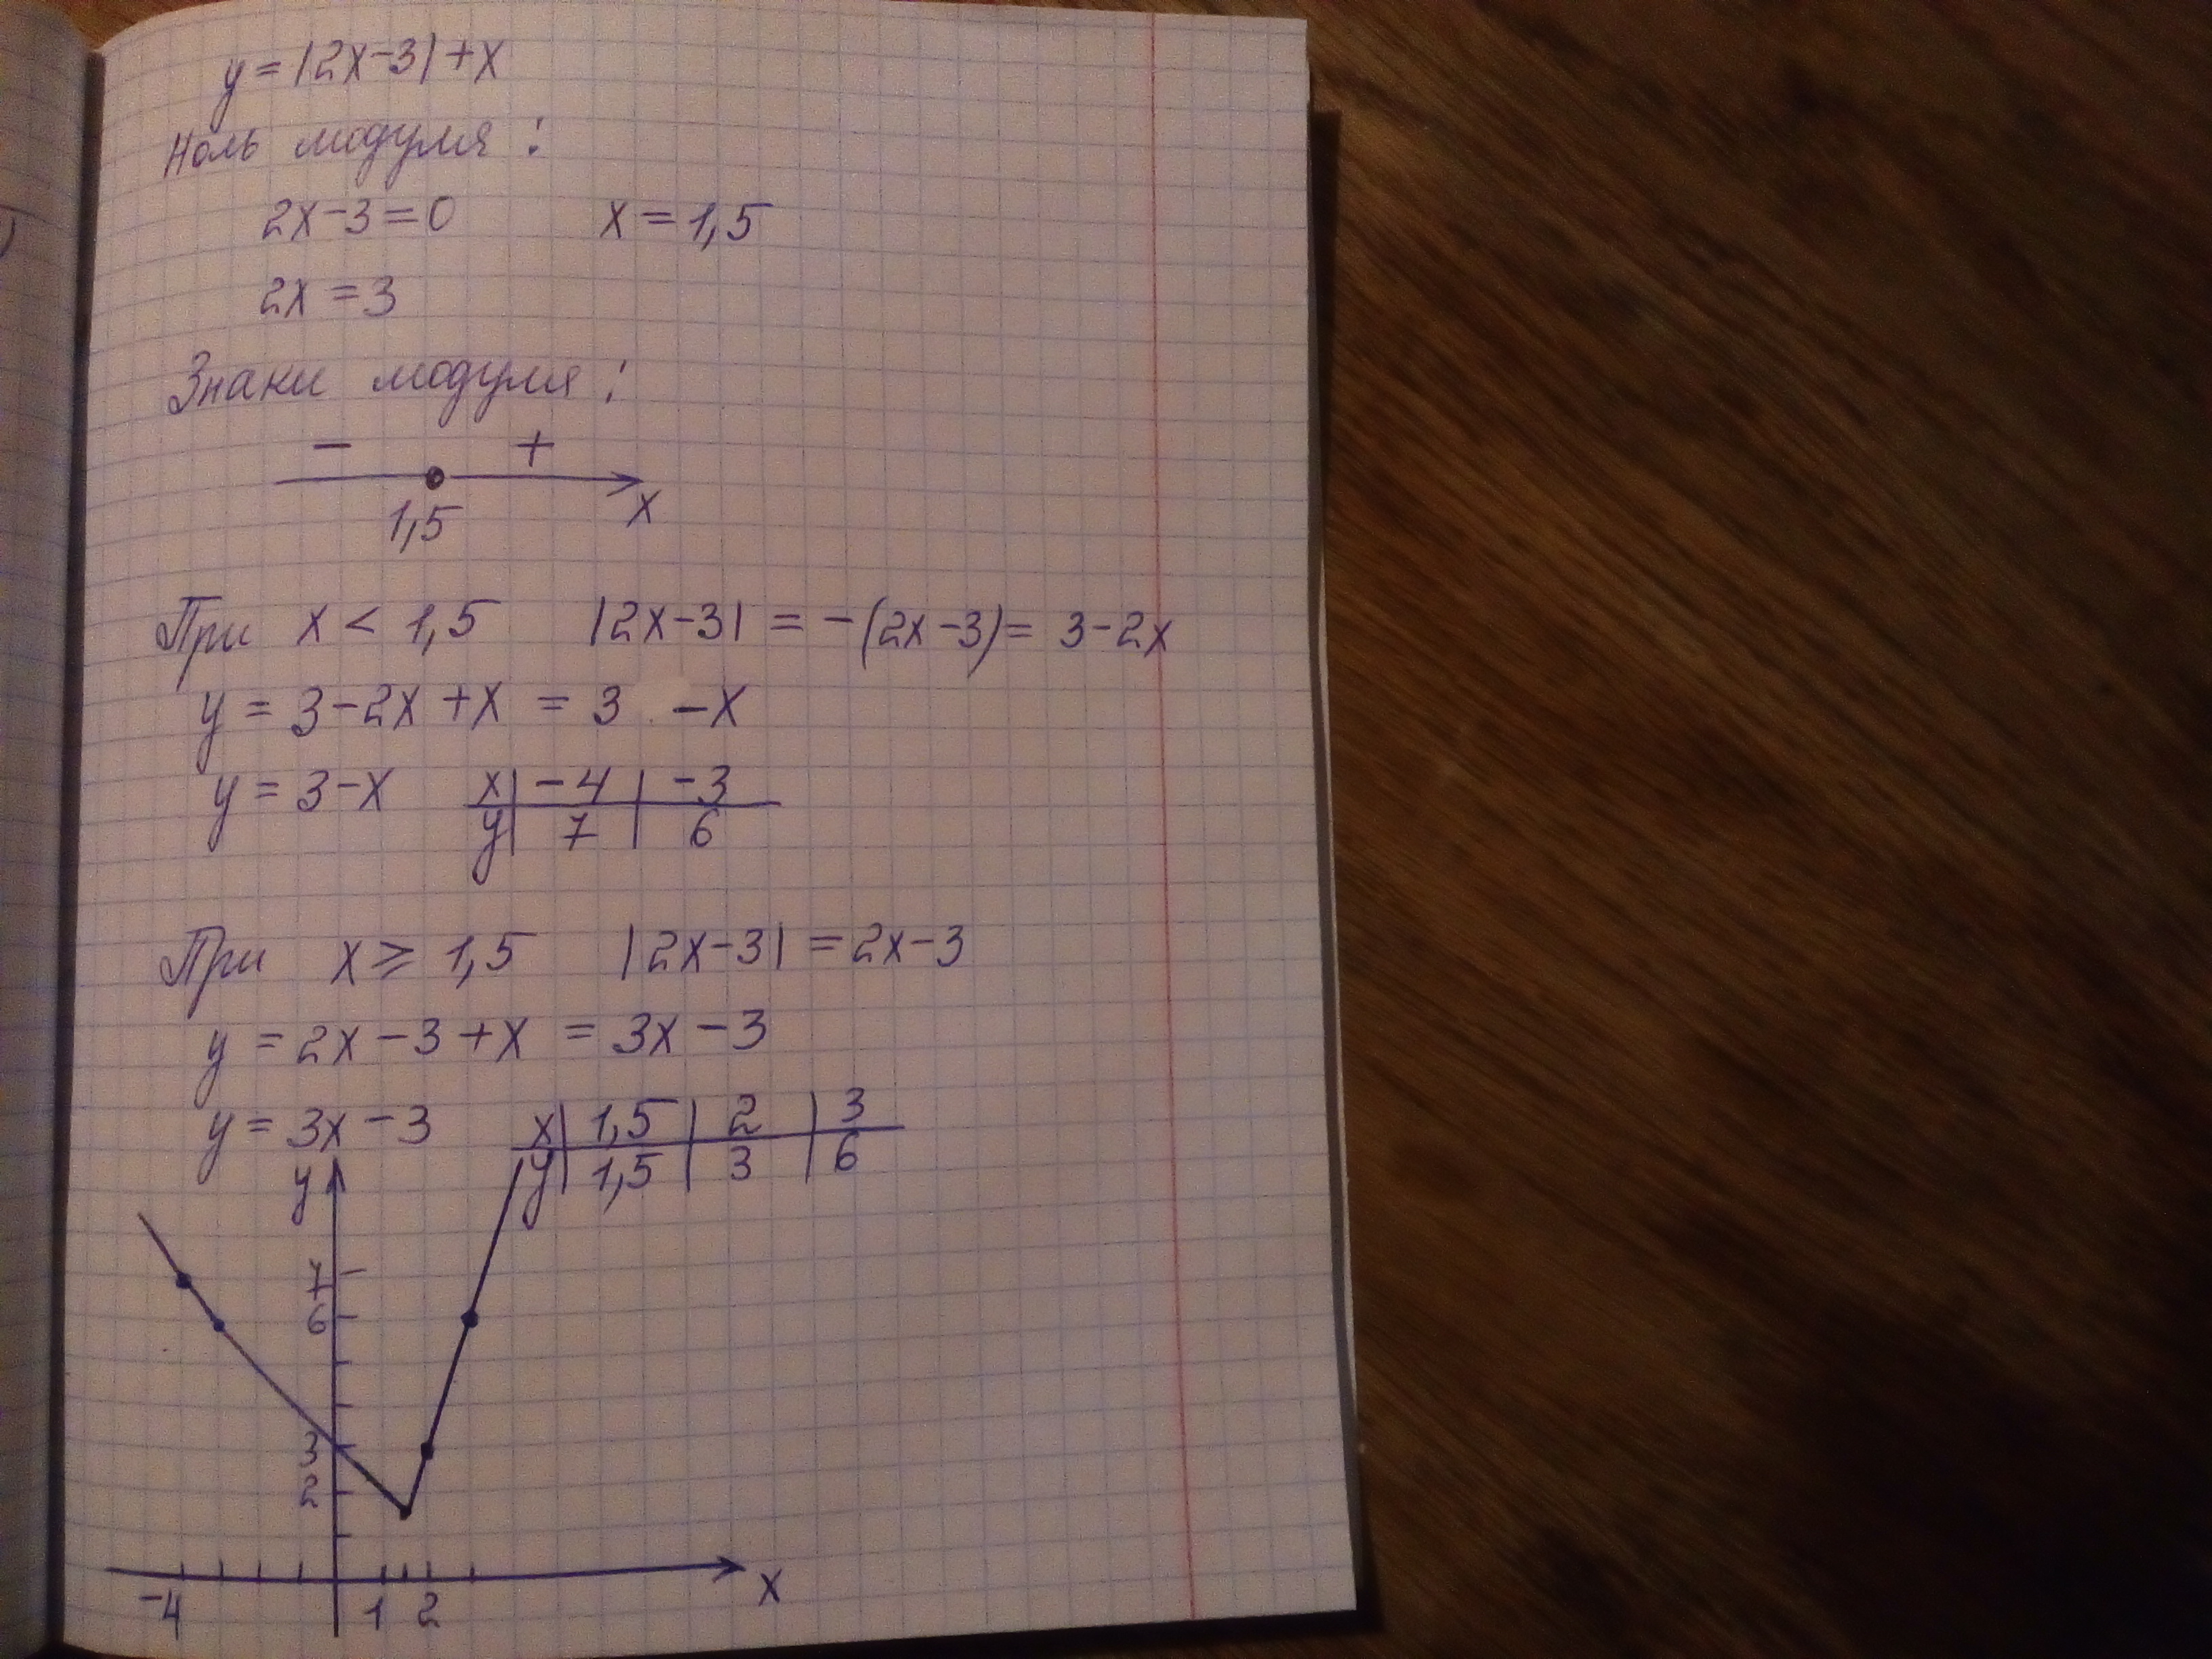 y = |2x-3| + x
Ноль модуля :
2x-3=0 x = 1,5
2x = 3
Знаки модуля :
- +
1,5 x
При x < 1,5 |2x-3| = -(2x-3) = 3-2x
y = 3-2x+x = 3 -x
y = 3-x x | -4 | -3
y | 7 | 6
При x ≥ 1,5 |2x-3| = 2x-3
y = 2x-3+x = 3x-3
y = 3x-3 x | 1,5 | 2 | 3
y | 1,5 | 3 | 6
y
7
6
3
2
-4 1 2 x